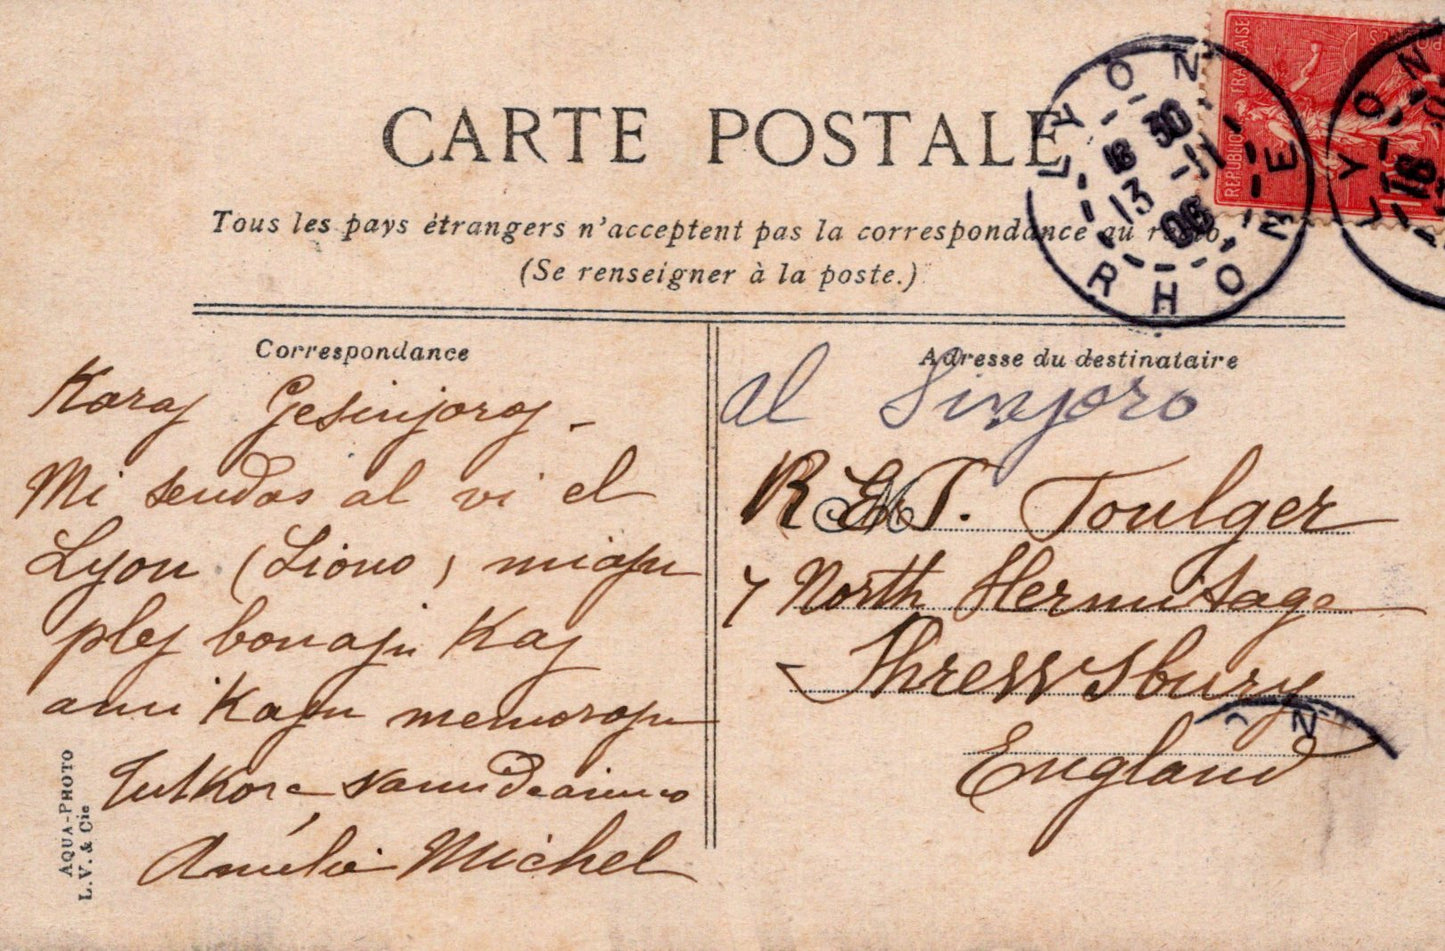 CARTE POSTALE
Tous les pays étrangers n'acceptent pas la correspondance au
(Se renseigner à la poste.)
RÉPUBLIQUE FRANÇAISE
POSTES
LYON RHONE
13 11
06
LYON
Correspondance
Karaj Gesinjoroj -
Mi sendas al vi el
Lyon (Liono) miajn
plej bonajn kaj
amikajn memorojn
Tutkore samideanino
Amélie Michel
AQUA-PHOTO
L.V. & Cie
Adresse du destinataire
al Sinjoro
R T. Toulger
7 North Hermitage
Shrewsbury
England